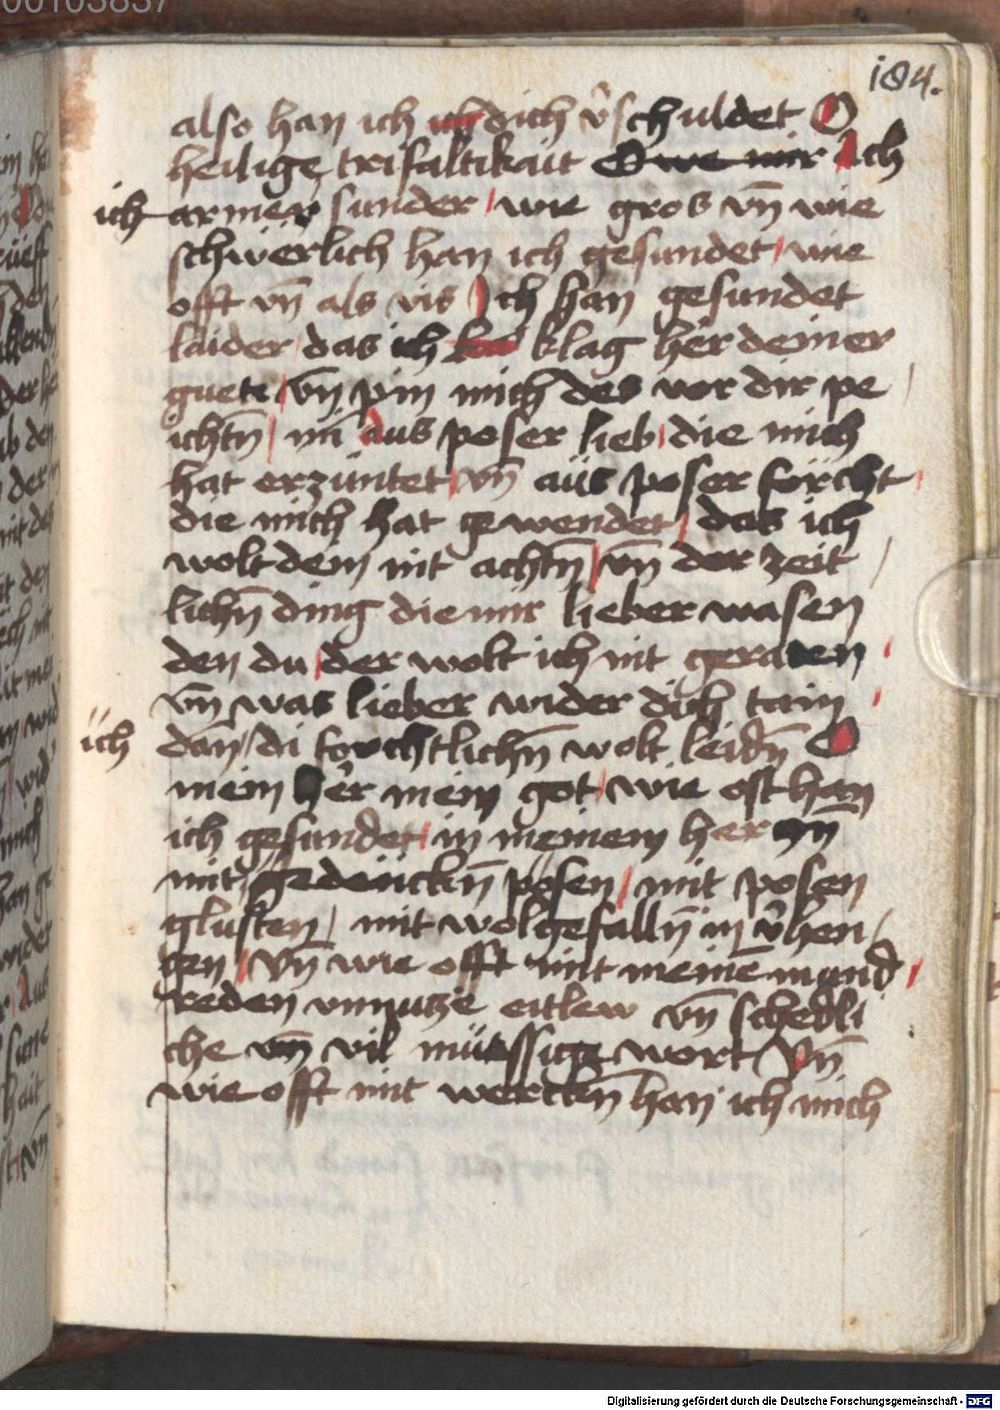 00103837
184.
also han ich ich dich v̄schuldet O
heilige trifaltikait O we mir Ach
ich armer sunder / wie gros vn̄ wie
schwerlich han ich gesundet / wie
offt vn̄ als vis Ich han gesundet
laider / das ich klag her deiner
guete / vn̄ pin mich des vor dir pe /
ichtn̄ / Aus poser lieb / die mich
hat erzuntet / vn̄ aüs poser forcht /
die mich hat gewendet / das ich
wolt dem nit achtn̄ / vn̄ der zeit /
lichn̄ ding die mir lieber wasen
den du / der wolt ich nit geraten /
vn̄ was lieber wider dich
ich dan / di forchtlichn̄ wolt leidn̄ O
mein her mein got / wie oft han
ich gesundet / in meinem herczn̄
mit gedenckn̄ posen / mit posen
glusten / mit wolgefalln̄ in v̄hen /
gen / vn̄ wie offt mit meinē mund /
reden vnnutze eitlew vn̄ schedli
che vn̄ vil müessige wort / Vn̄
wie offt mit werckn̄ han ich mich
Digitalisierung gefördert durch die Deutsche Forschungsgemeinschaft - DFG